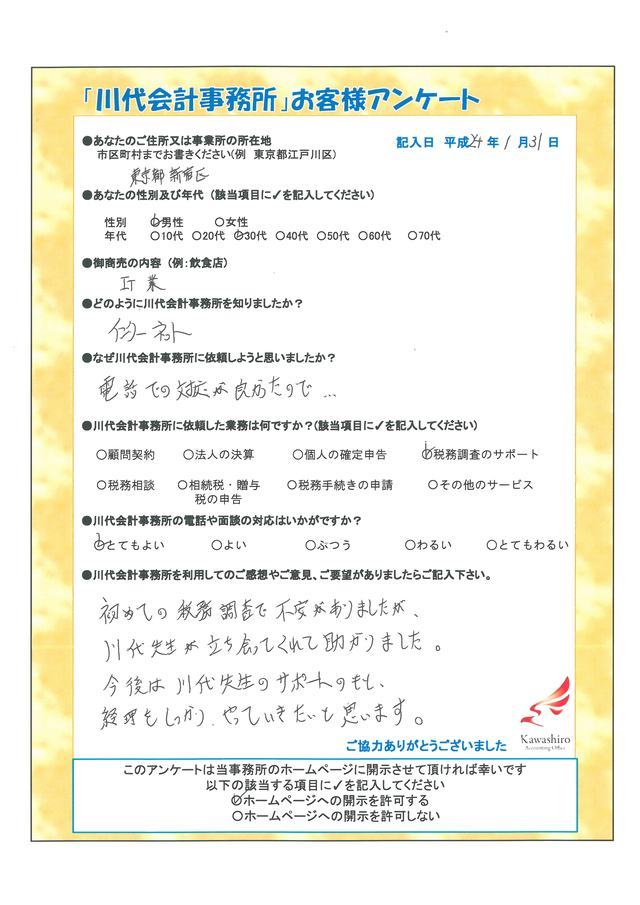 「川代会計事務所」お客様アンケート
●あなたのご住所又は事業所の所在地
記入日 平成24年1月31日
市区町村までお書きください(例 東京都江戸川区)
東京都新宿区
●あなたの性別及び年代(該当項目に✓を記入してください)
性別 ○男性 ○女性
年代 ○10代 ○20代 ○30代 ○40代 ○50代 ○60代 ○70代
●御商売の内容(例:飲食店)
IT業
●どのように川代会計事務所を知りましたか?
インターネット
●なぜ川代会計事務所に依頼しようと思いましたか?
電話での対応が良かったので…
●川代会計事務所に依頼した業務は何ですか?(該当項目に✓を記入してください)
○顧問契約 ○法人の決算 ○個人の確定申告 ○税務調査のサポート
○税務相談 ○相続税・贈与 ○税務手続きの申請 ○その他のサービス
税の申告
●川代会計事務所の電話や面談の対応はいかがですか?
○とてもよい ○よい ○ぶつう ○わるい ○とてもわるい
●川代会計事務所を利用してのご感想やご意見、ご要望がありましたらご記入下さい。
初めての税務調査で不安がありましたが、
川代先生が立ち会ってくれて助かりました。
今後は川代先生のサポートのもと、
経理をしっかりやっていきたいと思います。
Kawashiro
Accounting Office
ご協力ありがとうございました
このアンケートは当事務所のホームページに開示させて頂ければ幸いです
以下の該当する項目に✓を記入してください
○ホームページへの開示を許可する
○ホームページへの開示を許可しない